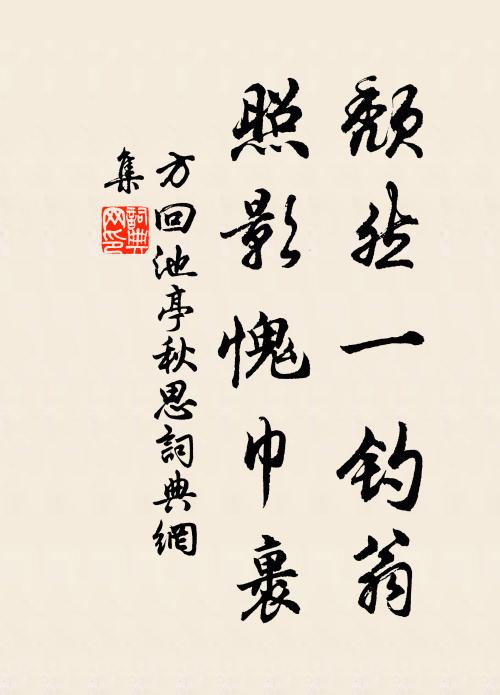 頹然一釣翁
照影愧巾裹
方回池亭秋思詞典網
集
詞典網印